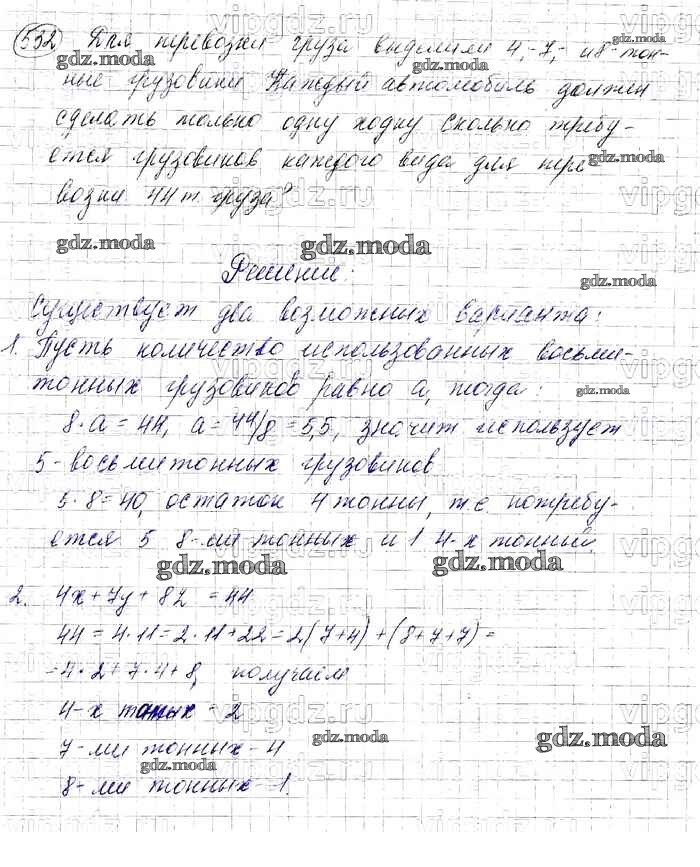 532 Для перевозки груза выделили 4-, 7-, и 8-тон-
ные грузовики. Каждый автомобиль должен
сделать только одну ходку Сколько требу-
ется грузовиков каждого вида для пере
возки 44 т. груза?
Решение:
Существует два возможных варианта:
1. Пусть количество использованных восьми-
тонных грузовиков равно a, тогда:
8·a=44, a=44/8=5,5, значит используют
5-восьмитонных грузовиков
5·8=40, остаток 4 тонны, т.е. потребу-
ется 5 8-ми тонных и 1 4-х тонный.
2. 4x+7y+8z =44
44=4·11=2·11+22=2(7+4)+(8+7+7)=
=4·2+7·4+8, получаем
4-х тонных - 2
7-ми тонных - 4
8-ми тонных - 1.
gdz.moda
vipgdz.ru